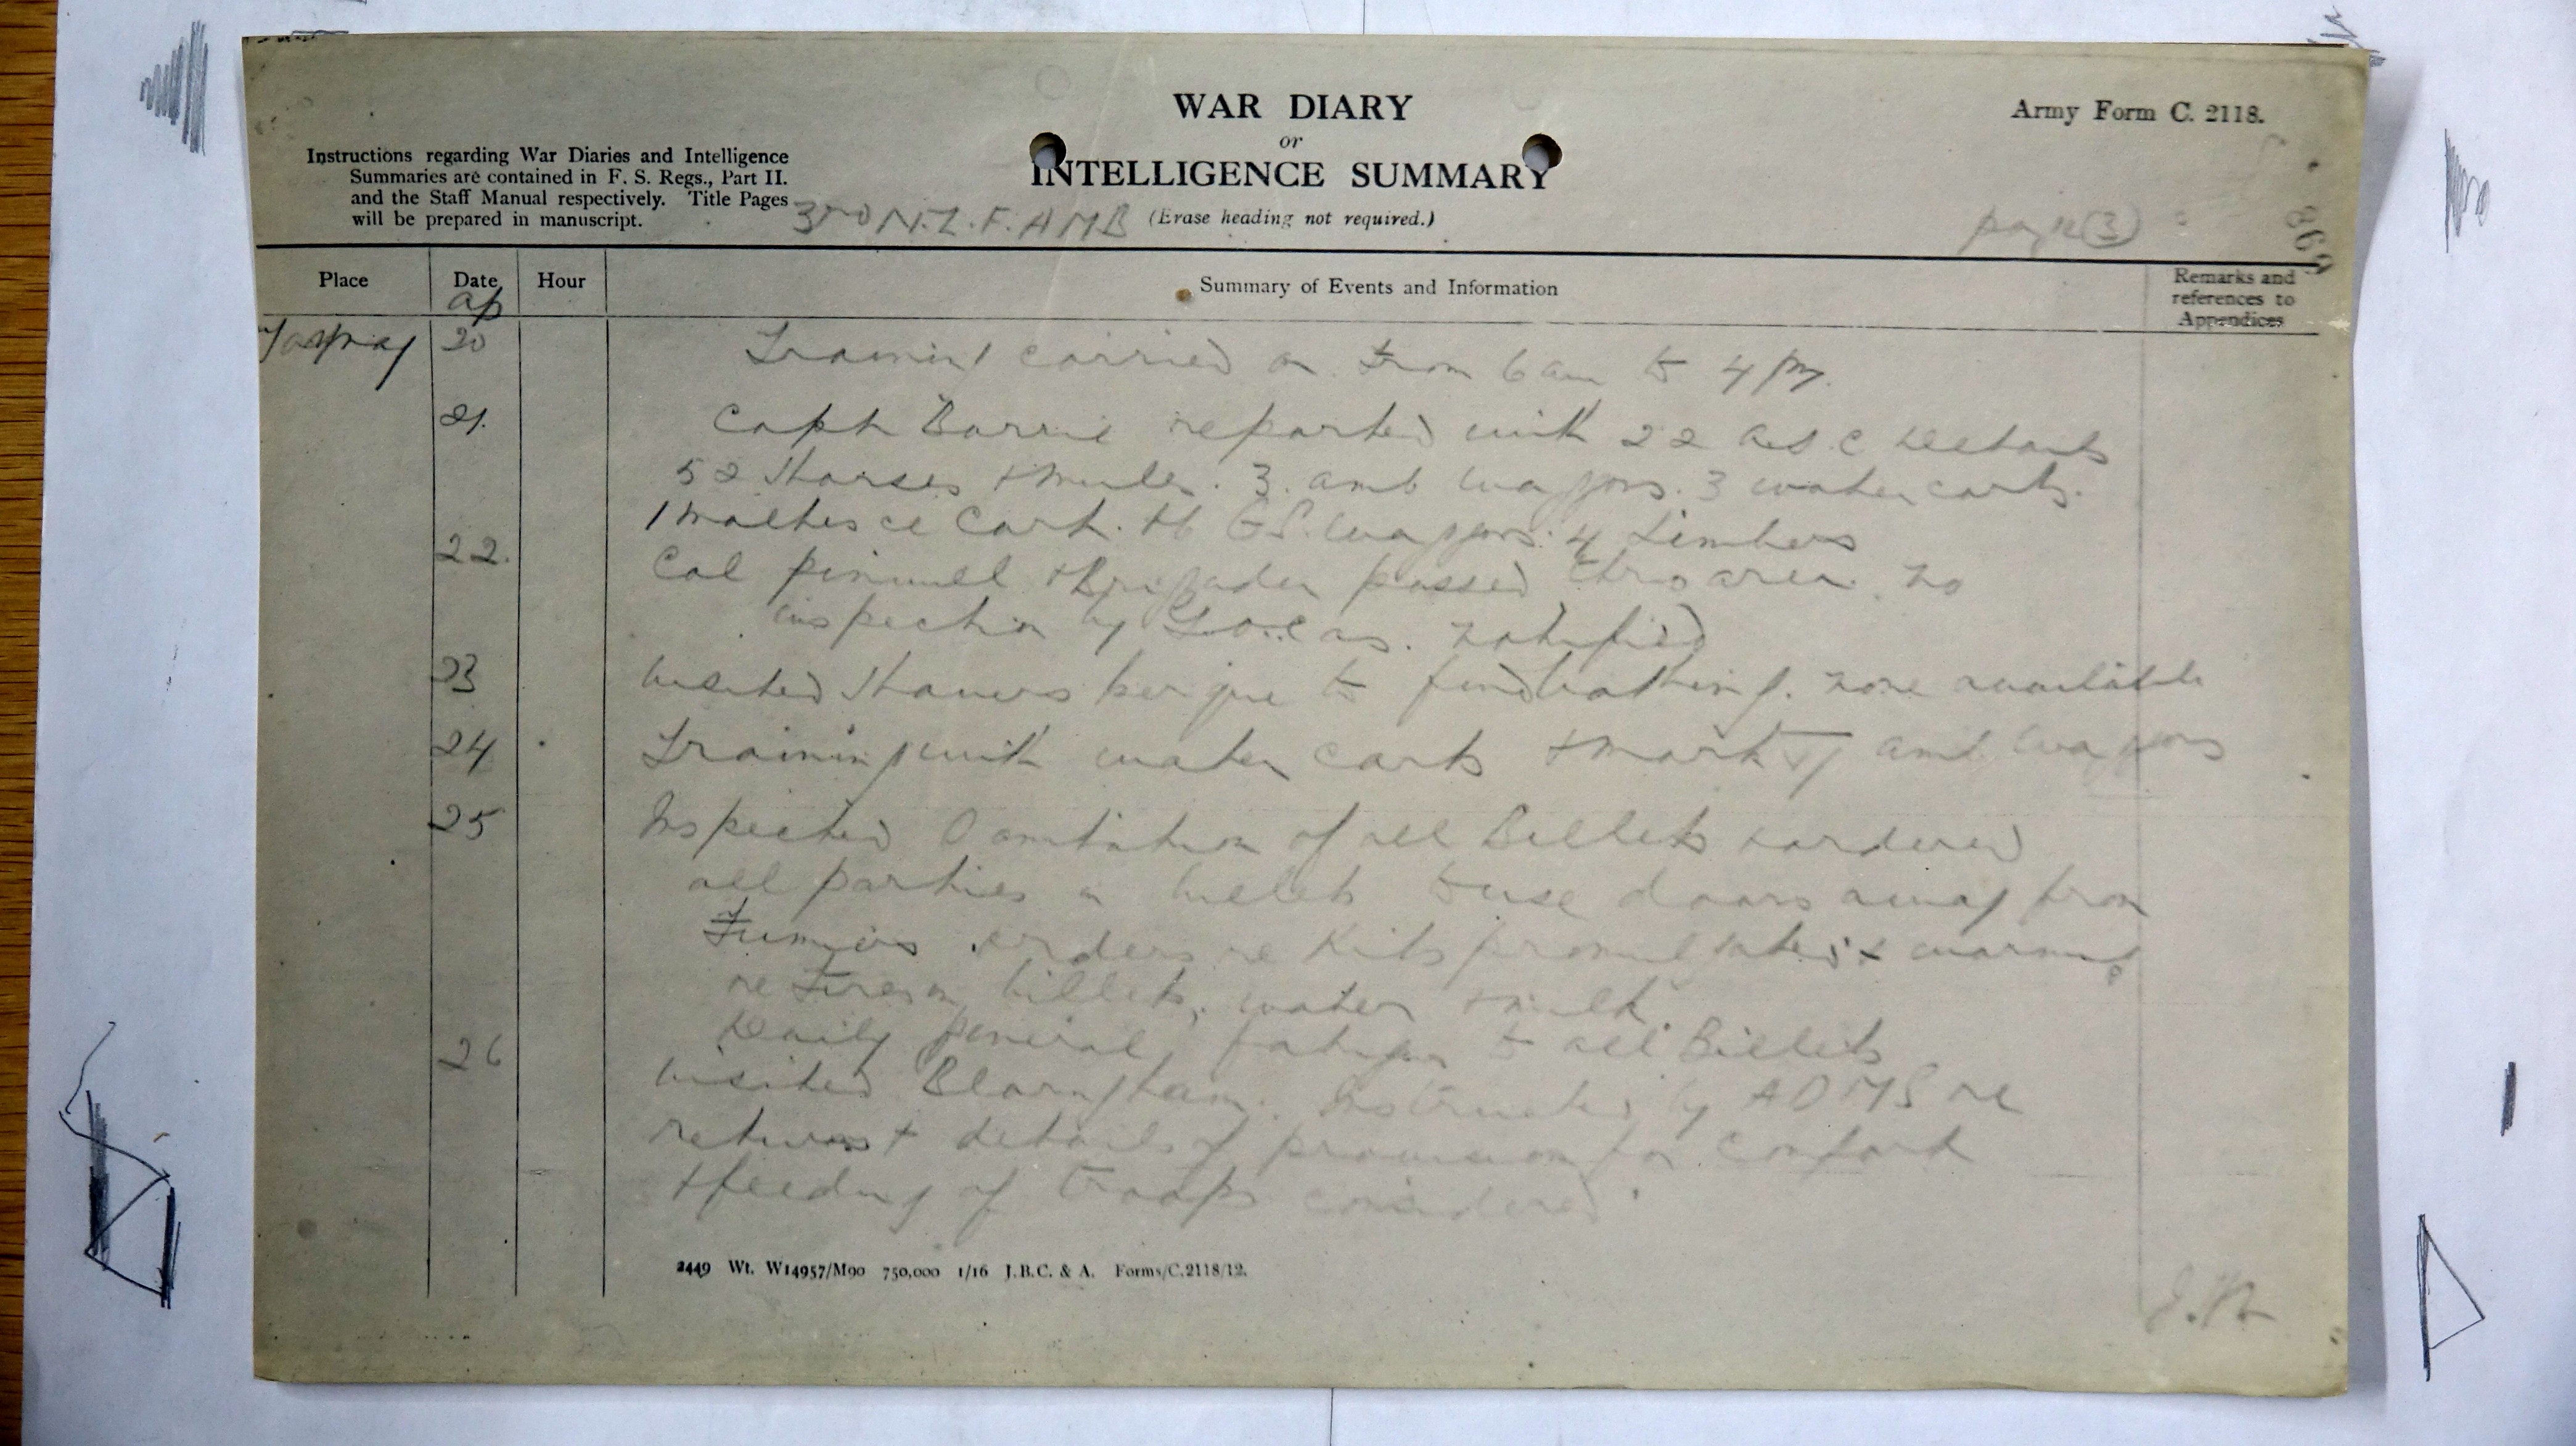 WAR DIARY
or
INTELLIGENCE SUMMARY
(Erase heading not required.)
Army Form C. 2118.
Instructions regarding War Diaries and Intelligence
Summaries are contained in F. S. Regs., Part II.
and the Staff Manual respectively. Title Pages
will be prepared in manuscript.
3RD N.Z. F. AMB
page (3)
869
Place
Date
Hour
Summary of Events and Information
Remarks and
references to
Appendices
ap
20 Training carried on from 6 am to 4 pm.
21. Capt Barrie reported with 22 A.S.C
52 Horses + mules. 3. amb waggons. 3 water carts.
1 maltese cart. +6 G.S. waggons. 4 Limbers
22. Col + Brigadier passed thro area. no
inspection by G.O.C as. notified
23 Visited to find bathing. none available
24 Training with water carts + amb waggons
25 Inspected Sanitation of all Billets + ordered
all parties in billets to use doors away from
orders re Kits promulgated + warning
re fires in billets, water + milk.
Daily general fatigue to all Billets
26 Visited Blaringham. Instructed by ADMS re
returns + details of provision for comfort
+ feeding of troops considered.
2449 Wt. W14957/M90 750,000 1/16 J.B.C. & A. Forms/C.2118/12.